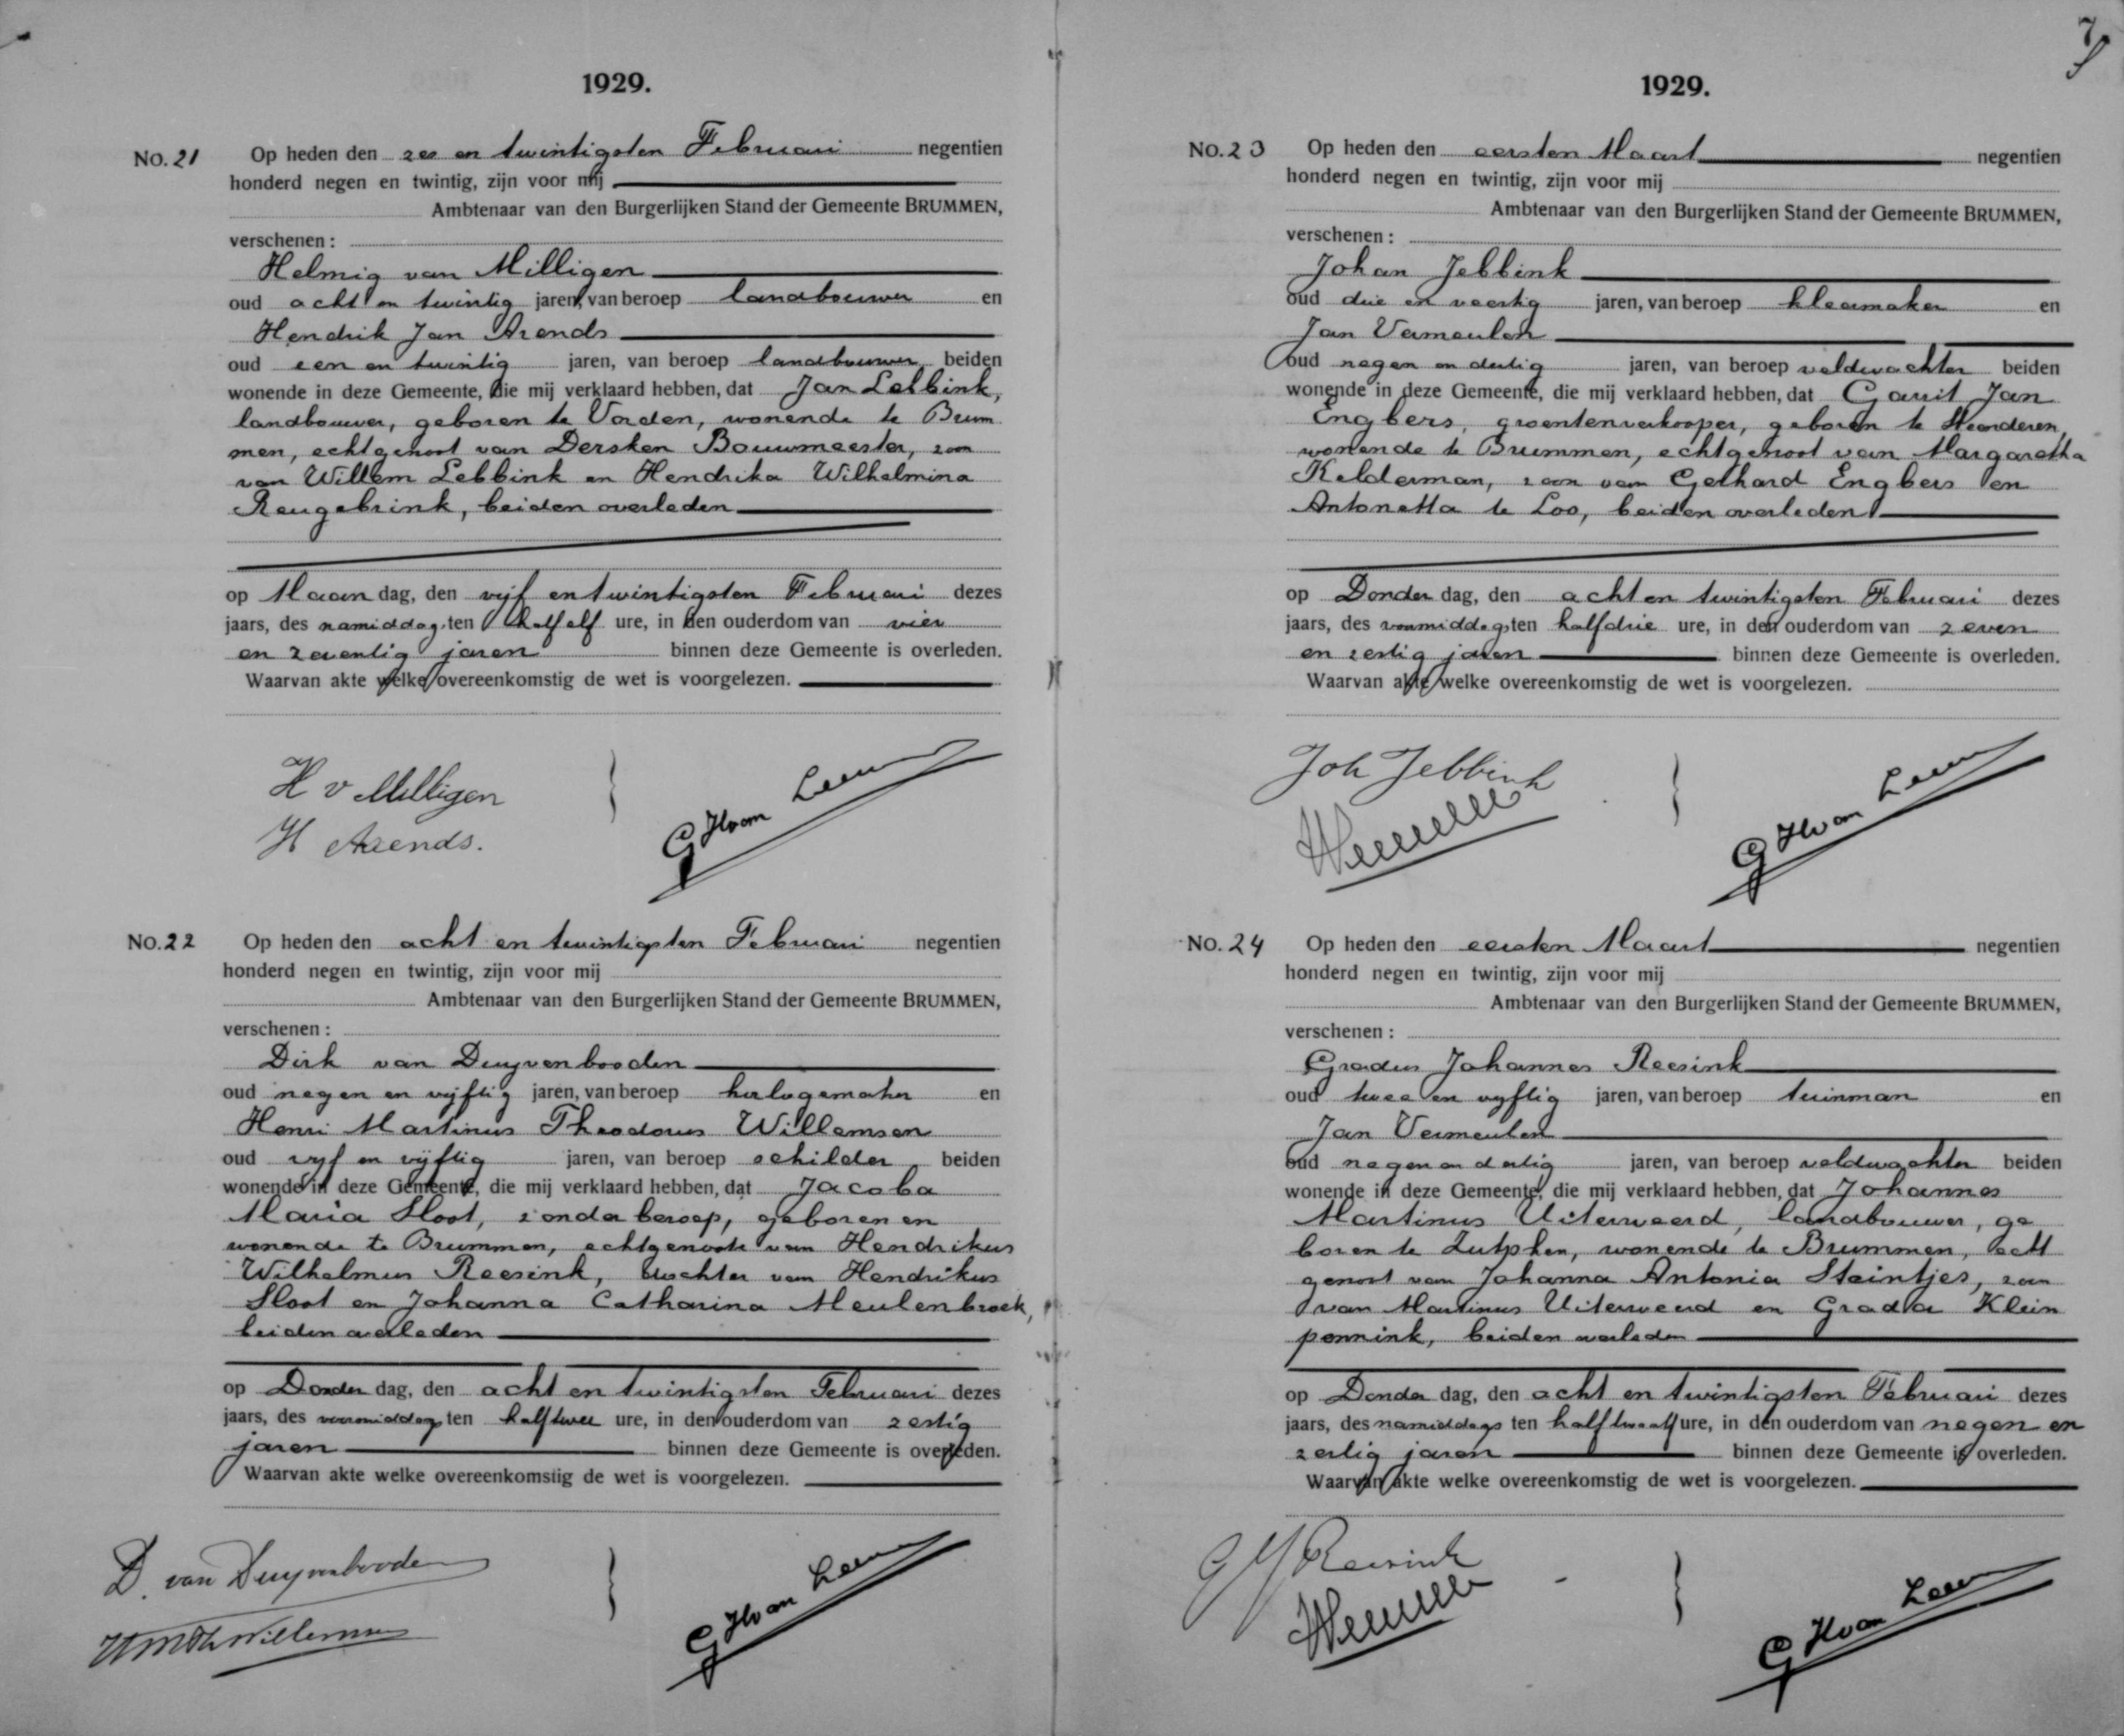 1929.
No. 21 Op heden den zes en twintigsten Februari negentien
honderd negen en twintig, zijn voor mij
Ambtenaar van den Burgerlijken Stand der Gemeente BRUMMEN,
verschenen:
Helmig van Milligen
oud acht en twintig jaren, van beroep landbouwer en
Hendrik Jan Arends
oud een en twintig jaren, van beroep landbouwer beiden
wonende in deze Gemeente, die mij verklaard hebben, dat Jan Lebbink,
landbouwer, geboren te Vorden, wonende te Brum
men, echtgenoot van Dersken Bouwmeester, zoon
van Willem Lebbink en Hendrika Wilhelmina
Reugebrink, beiden overleden
op Maandag, den vijf en twintigsten Februari dezes
jaars, des namiddags ten half elf ure, in den ouderdom van vier
en zeventig jaren binnen deze Gemeente is overleden.
Waarvan akte welke overeenkomstig de wet is voorgelezen.
H v Milligen
H Arends.
G H van Leeu
No. 22 Op heden den acht en twintigsten Februari negentien
honderd negen en twintig, zijn voor mij
Ambtenaar van den Burgerlijken Stand der Gemeente BRUMMEN,
verschenen:
Dirk van Duyvenbooden
oud negen en vijftig jaren, van beroep horlogemaker en
Henri Martinus Theodorus Willemsen
oud vijf en vijftig jaren, van beroep schilder beiden
wonende in deze Gemeente, die mij verklaard hebben, dat Jacoba
Maria Sloot, zonder beroep, geboren en
wonende te Brummen, echtgenoote van Hendrikus
Wilhelmus Reesink, dochter van Hendrikus
Sloot en Johanna Catharina Meulenbroek,
beiden overleden
op Donderdag, den acht en twintigsten Februari dezes
jaars, des voormiddags ten half twee ure, in den ouderdom van zestig
jaren binnen deze Gemeente is overleden.
Waarvan akte welke overeenkomstig de wet is voorgelezen.
D. van Duyvenbooden
HMTh Willemsen
G H van Leeu
7
1929.
No. 23 Op heden den eersten Maart negentien
honderd negen en twintig, zijn voor mij
Ambtenaar van den Burgerlijken Stand der Gemeente BRUMMEN,
verschenen:
Johan Jebbink
oud drie en veertig jaren, van beroep kleermaker en
Jan Vermeulen
oud negen en dertig jaren, van beroep veldwachter beiden
wonende in deze Gemeente, die mij verklaard hebben, dat Garrit Jan
Engbers, groentenverkooper, geboren te Steenderen,
wonende te Brummen, echtgenoot van Margaretha
Kelderman, zoon van Gerhard Engbers en
Antonetta te Loo, beiden overleden
op Donderdag, den acht en twintigsten Februari dezes
jaars, des voormiddags ten half drie ure, in den ouderdom van zeven
en zestig jaren binnen deze Gemeente is overleden.
Waarvan akte welke overeenkomstig de wet is voorgelezen.
Joh Jebbink
G H van Leeu
No. 24 Op heden den eersten Maart negentien
honderd negen en twintig, zijn voor mij
Ambtenaar van den Burgerlijken Stand der Gemeente BRUMMEN,
verschenen:
Gradus Johannes Reesink
oud twee en vyftig jaren, van beroep tuinman en
Jan Vermeulen
oud negen en dertig jaren, van beroep veldwachter beiden
wonende in deze Gemeente, die mij verklaard hebben, dat Johannes
Martinus Uiterweerd, landbouwer, ge
boren te Zutphen, wonende te Brummen, echt
genoot van Johanna Antonia Steintjes, zoon
van Martinus Uiterweerd en Grada Klein
pennink, beiden overleden
op Donderdag, den acht en twintigsten Februari dezes
jaars, des namiddags ten half twaalf ure, in den ouderdom van negen en
zestig jaren binnen deze Gemeente is overleden.
Waarvan akte welke overeenkomstig de wet is voorgelezen.
G J Reesink
G H van Leeu